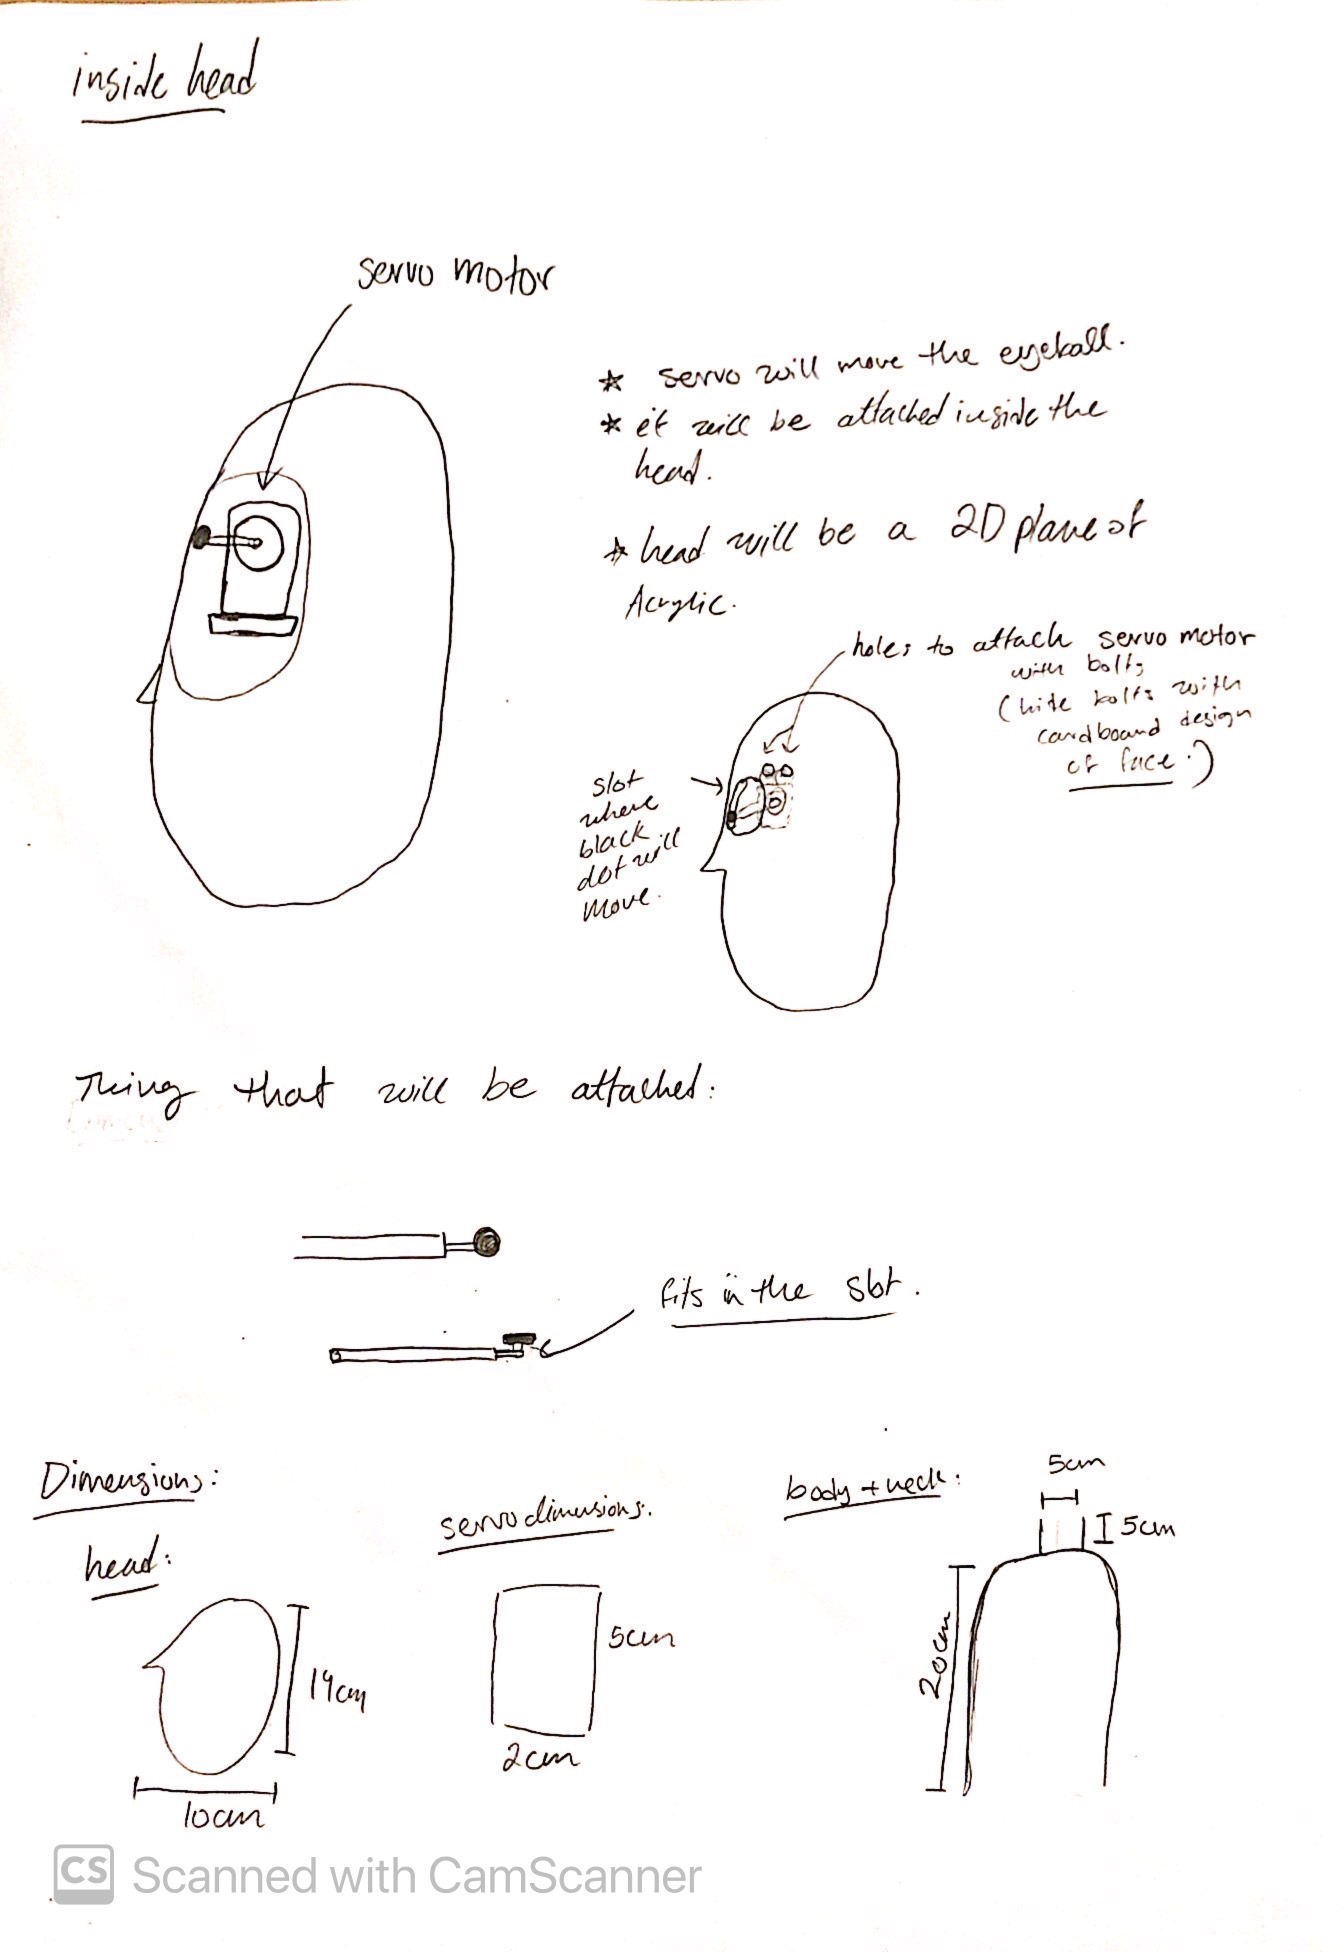 inside head
servo motor
* servo will move the eyeball.
* it will be attached inside the
head.
* head will be a 2D plane of
Acrylic.
holes to attach servo motor
with bolts
(hide bolts with
cardboard design
of face.)
slot
where
black
dot will
move.
Thing that will be attached:
fits in the slot.
Dimensions:
head:
14cm
10cm
servo dimensions:
5cm
2cm
body + neck:
5cm
5cm
20cm
CS Scanned with CamScanner